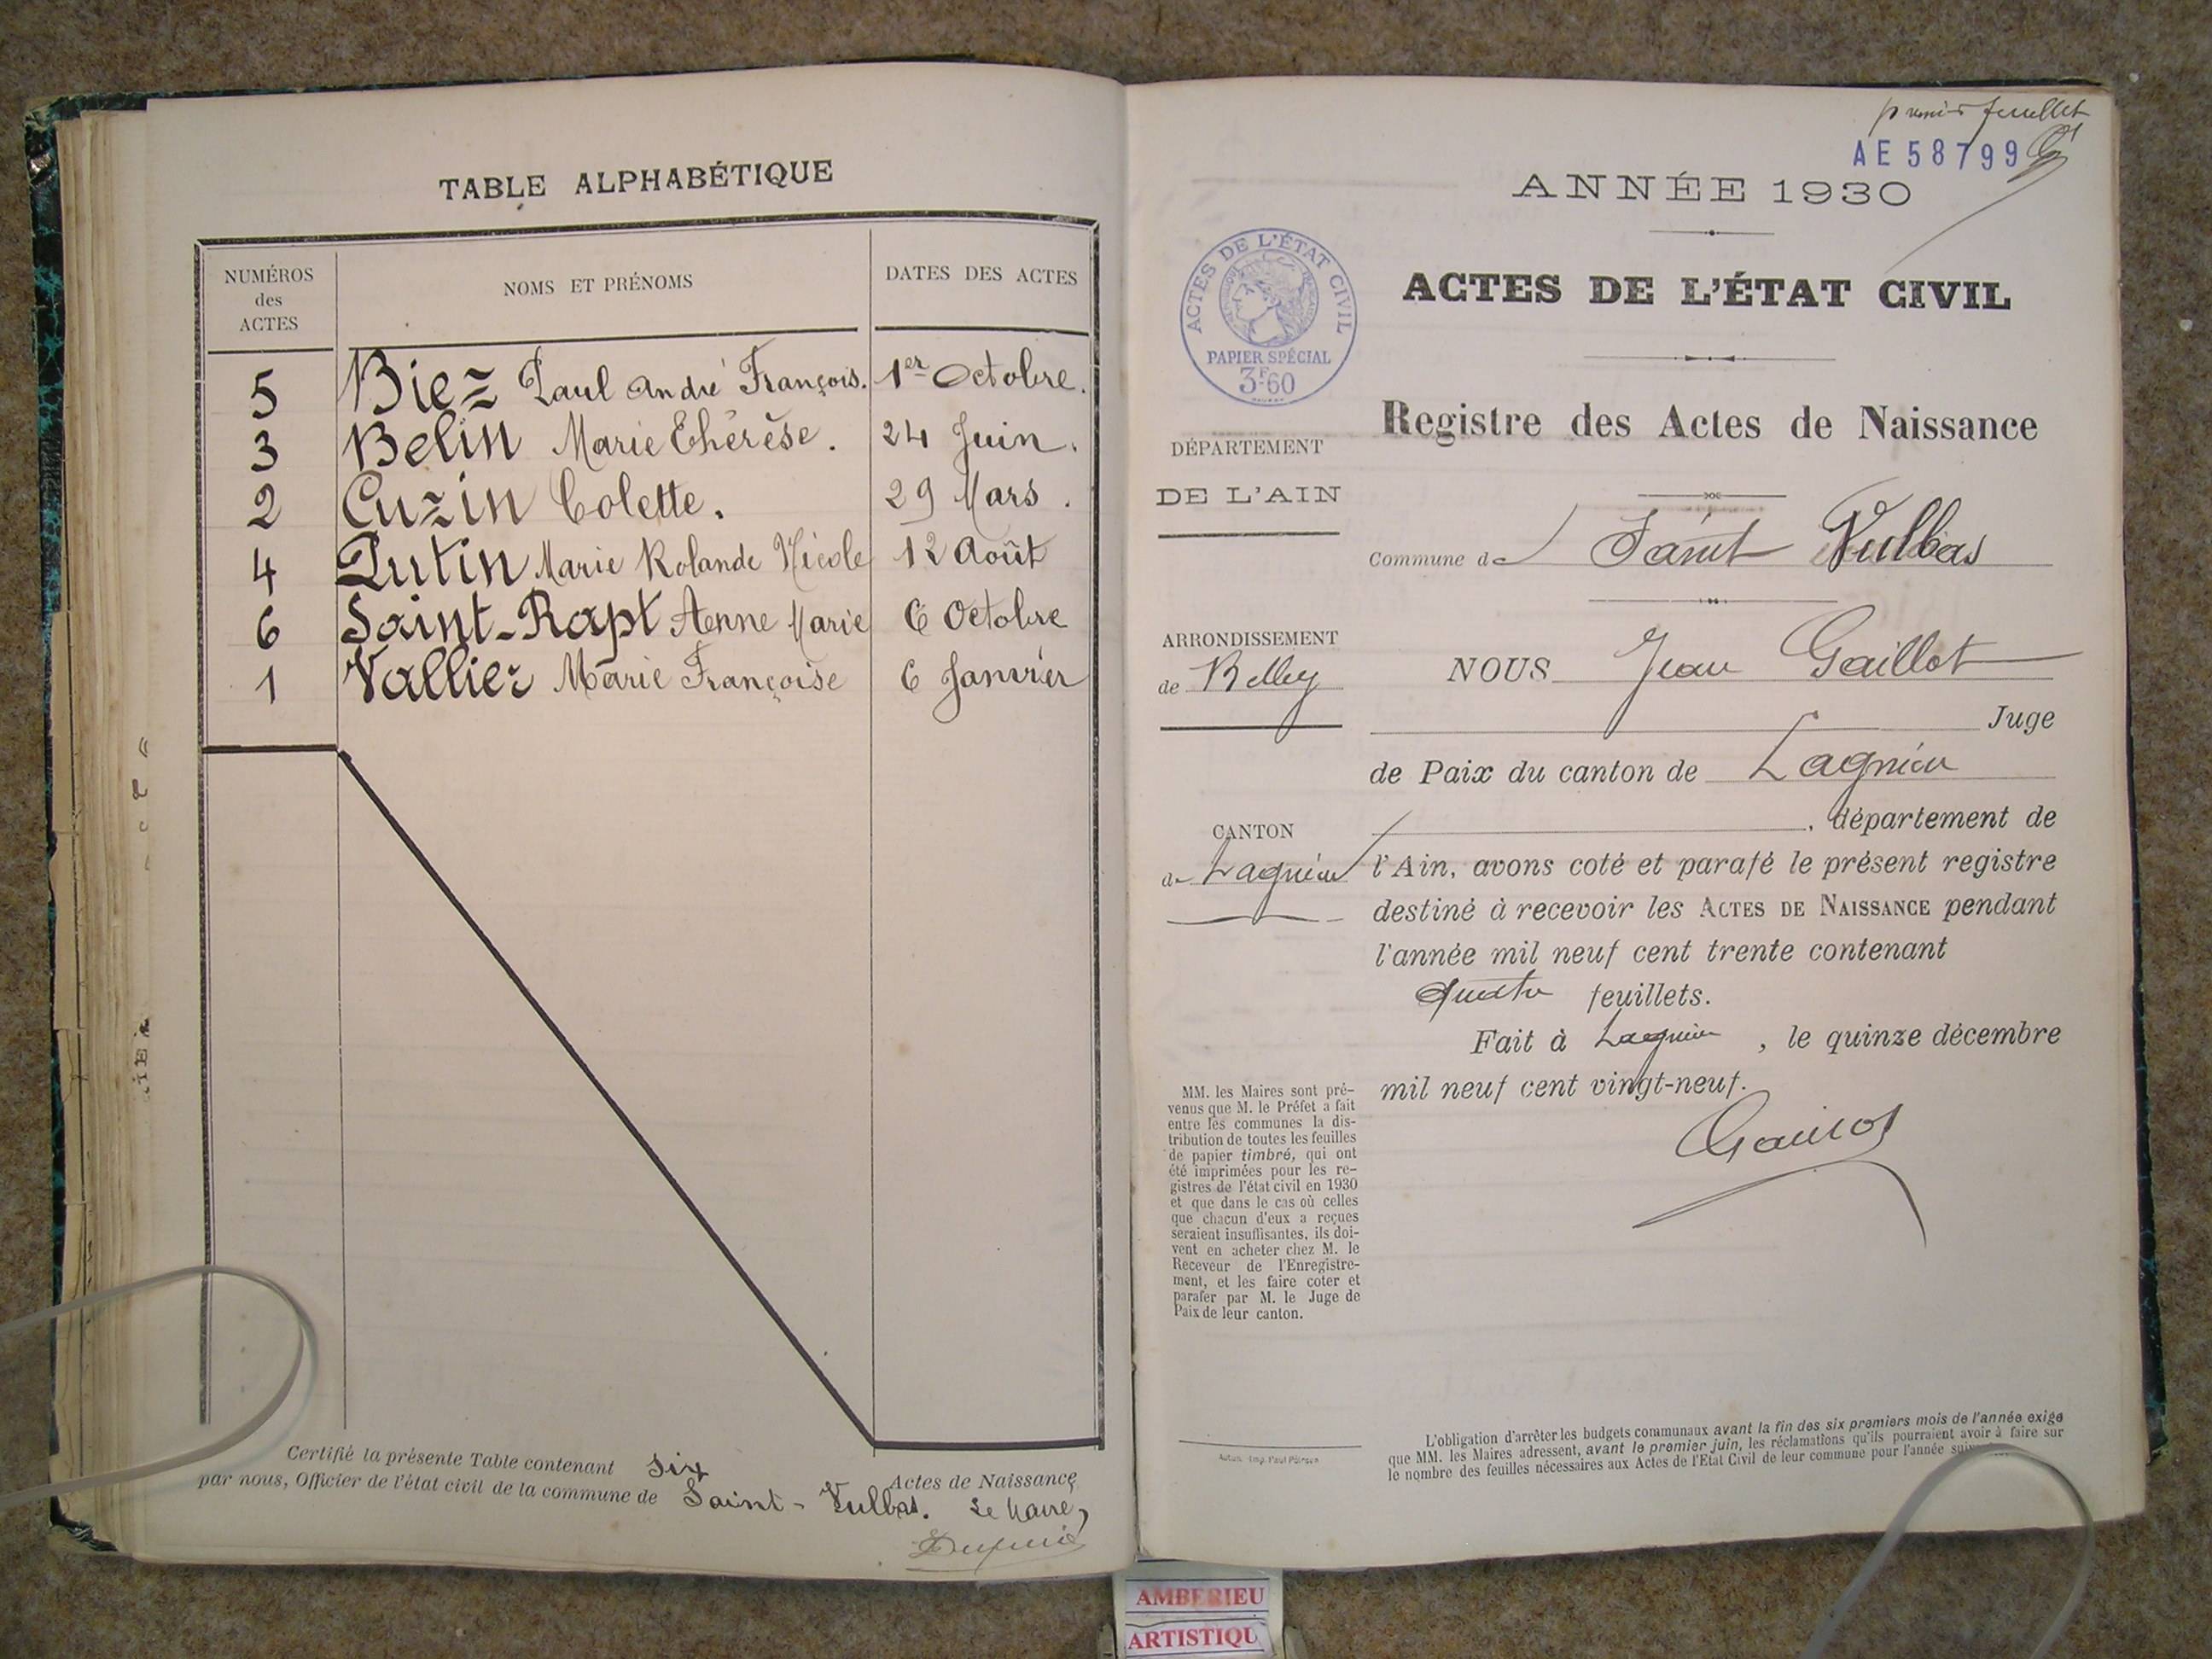 TABLE ALPHABÉTIQUE
NUMÉROS des ACTES NOMS ET PRÉNOMS DATES DES ACTES
5 Biez Paul André François. 1er Octobre.
3 Belin Marie Thérèse. 24 Juin.
2 Cuzin Colette. 29 Mars.
4 Putin Marie Rolande Nicole 12 Août
6 Saint-Rapt Anne Marie 6 Octobre
1 Vallier Marie Françoise 6 Janvier
Certifié la présente Table contenant six Actes de Naissance
par nous, Officier de l'état civil de la commune de Saint-Vulbas. Le Maire,
premier feuillet
AE 58799
ANNÉE 1930
ACTES DE L'ÉTAT CIVIL
ACTES DE L'ÉTAT CIVIL
PAPIER SPÉCIAL
3F60
Registre des Actes de Naissance
DÉPARTEMENT
DE L'AIN
Commune de Saint Vulbas
ARRONDISSEMENT
de Belley
NOUS Jean Gaillot
Juge
de Paix du canton de Lagnieu
CANTON
de Lagnieu
, département de
l'Ain, avons coté et parafé le présent registre
destiné à recevoir les ACTES DE NAISSANCE pendant
l'année mil neuf cent trente contenant
quatre feuillets.
Fait à Lagnieu , le quinze décembre
mil neuf cent vingt-neuf.
MM. les Maires sont pré-
venus que M. le Préfet a fait
entre les communes la dis-
tribution de toutes les feuilles
de papier timbré, qui ont
été imprimées pour les re-
gistres de l'état civil en 1930
et que dans le cas où celles
que chacun d'eux a reçues
seraient insuffisantes, ils doi-
vent en acheter chez M. le
Receveur de l'Enregistre-
ment, et les faire coter et
parafer par M. le Juge de
Paix de leur canton.
L'obligation d'arrêter les budgets communaux avant la fin des six premiers mois de l'année exige
que MM. les Maires adressent, avant le premier juin, les réclamations qu'ils pourraient avoir à faire sur
le nombre des feuilles nécessaires aux Actes de l'État Civil de leur commune pour l'année
AMBERIEU
ARTISTIQU